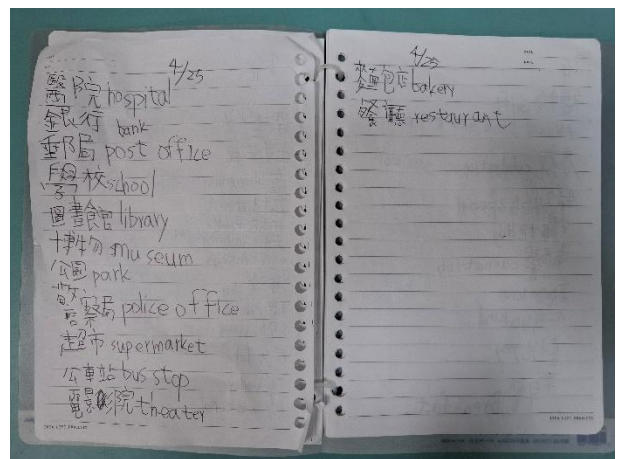 4/25
醫院 hospital
銀行 bank
郵局 post office
學校 school
圖書館 library
博物 museum
公園 park
警察局 police office
超市 supermarket
公車站 bus stop
電影院 theater
4/25
麵包店 bakery
餐廳 restaurant